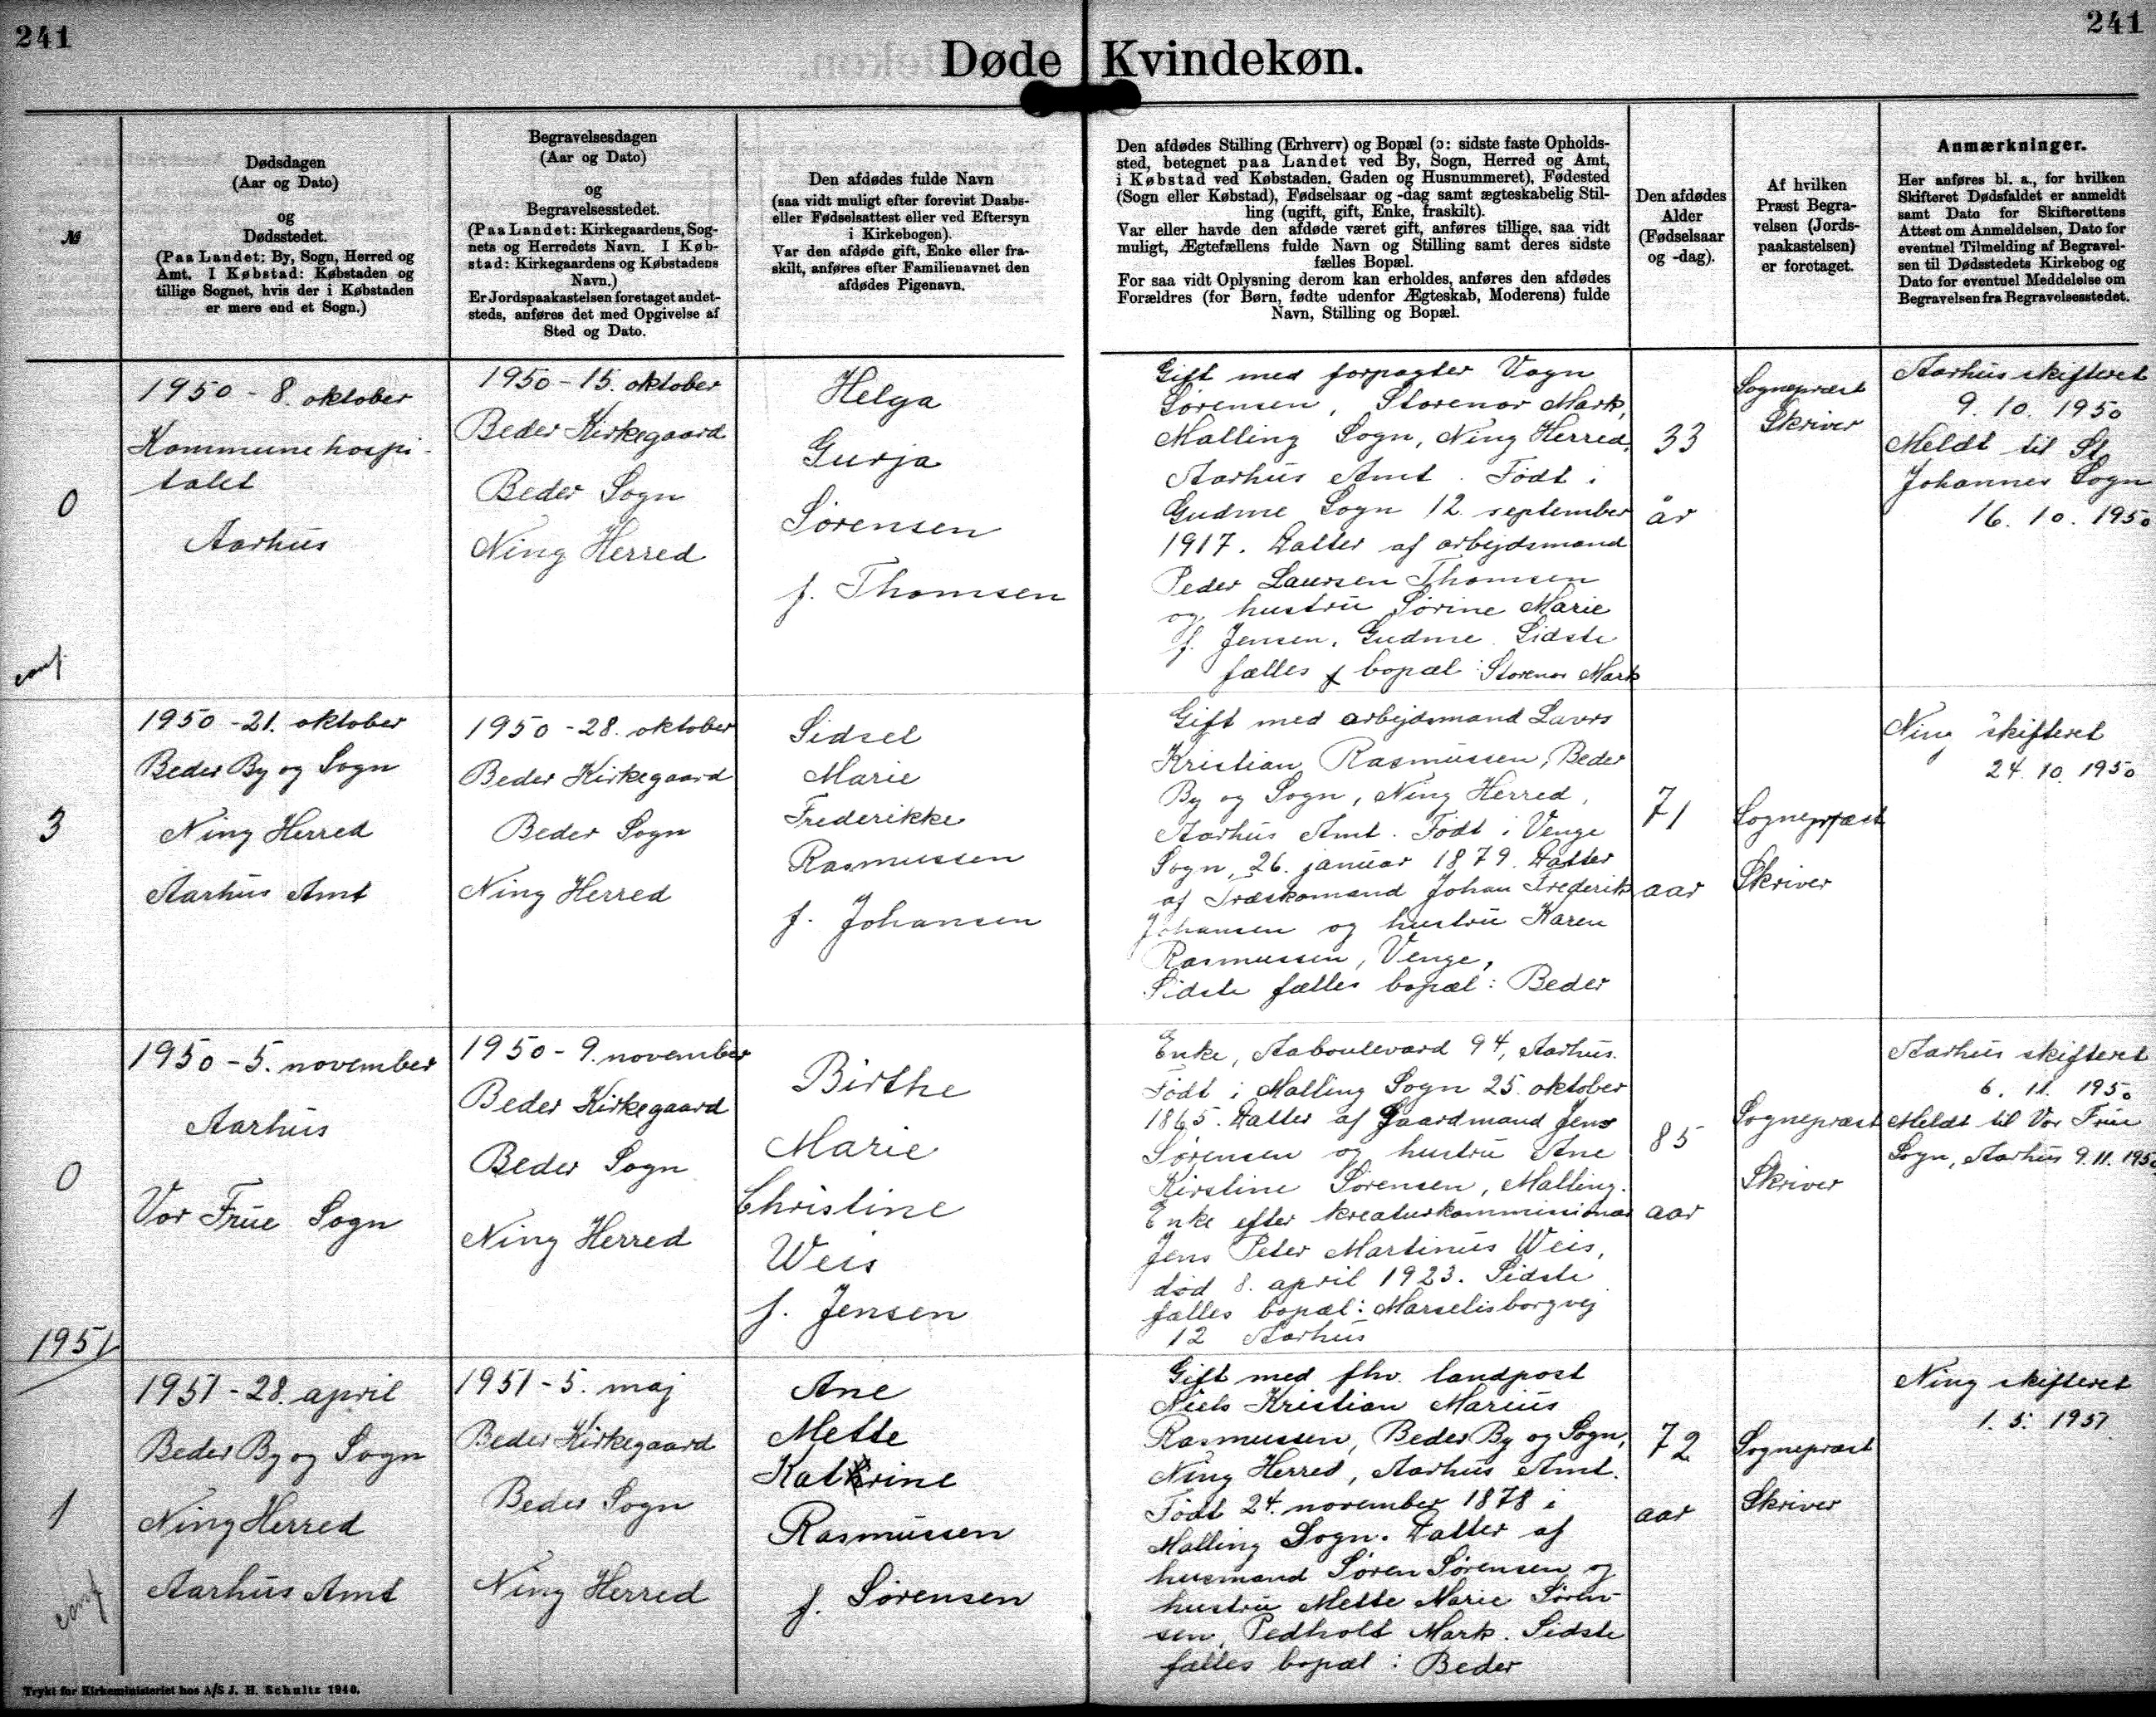 241
241
Døde Kvindekøn.
№
Dødsdagen
(Aar og Dato)
og
Dødsstedet.
(Paa Landet: By, Sogn, Herred og
Amt. I Købstad: Købstaden og
tillige Sognet, hvis der i Købstaden
er mere end et Sogn.)
Begravelsesdagen
(Aar og Dato)
og
Begravelsesstedet.
(Paa Landet: Kirkegaardens, Sog-
nets og Herredets Navn. I Køb-
stad: Kirkegaardens og Købstadens
Navn.)
Er Jordspaakastelsen foretaget andet-
steds, anføres det med Opgivelse af
Sted og Dato.
Den afdødes fulde Navn
(saa vidt muligt efter forevist Daabs-
eller Fødselsattest eller ved Eftersyn
i Kirkebogen).
Var den afdøde gift, Enke eller fra-
skilt, anføres efter Familienavnet den
afdødes Pigenavn.
Den afdødes Stilling (Erhverv) og Bopæl (ɔ: sidste faste Opholds-
sted, betegnet paa Landet ved By, Sogn, Herred og Amt,
i Købstad ved Købstaden, Gaden og Husnummeret), Fødested
(Sogn eller Købstad), Fødselsaar og -dag samt ægteskabelig Stil-
ling (ugift, gift, Enke, fraskilt).
Var eller havde den afdøde været gift, anføres tillige, saa vidt
muligt, Ægtefællens fulde Navn og Stilling samt deres sidste
fælles Bopæl.
For saa vidt Oplysning derom kan erholdes, anføres den afdødes
Forældres (for Børn, fødte udenfor Ægteskab, Moderens) fulde
Navn, Stilling og Bopæl.
Den afdødes
Alder
(Fødselsaar
og -dag).
Af hvilken
Præst Begra-
velsen (Jords-
paakastelsen)
er foretaget.
Anmærkninger.
Her anføres bl. a., for hvilken
Skifteret Dødsfaldet er anmeldt
samt Dato for Skifterettens
Attest om Anmeldelsen, Dato for
eventuel Tilmelding af Begravel-
sen til Dødsstedets Kirkebog og
Dato for eventuel Meddelelse om
Begravelsen fra Begravelsesstedet.
0
1950 - 8. oktober
Kommunehospi-
talet
Aarhus
1950 - 15. oktober
Beder Kirkegaard
Beder Sogn
Ning Herred
Helga
Gurja
Sørensen
f. Thomsen
Gift med forpagter Vagn
Sørensen, Storenor Mark,
Malling Sogn, Ning Herred,
Aarhus Amt. Født i
Gudme Sogn 12. september
1917. Datter af arbejdsmand
Peder Laursen Thomsen
og hustru Sørine Marie
f. Jensen, Gudme. Sidste
fælles bopæl: Storenor Mark
33
år
Sognepræst
Skriver
Aarhus skifteret
9. 10. 1950
Meldt til St.
Johannes Sogn
16. 10. 1950
3
1950 - 21. oktober
Beder By og Sogn
Ning Herred
Aarhus Amt
1950 - 28. oktober
Beder Kirkegaard
Beder Sogn
Ning Herred
Sidsel
Marie
Frederikke
Rasmussen
f. Johansen
Gift med arbejdsmand Laurs
Kristian Rasmussen, Beder
By og Sogn, Ning Herred,
Aarhus Amt. Født i Venge
Sogn, 26. januar 1879. Datter
af Træskomand Johan Frederik
Johansen og hustru Karen
Rasmussen, Venge,
Sidste fælles bopæl: Beder
71
aar
Sognepræst
Skriver
Ning skifteret
24. 10. 1950
0
1950 - 5. november
Aarhus
Vor Frue Sogn
1950 - 9. november
Beder Kirkegaard
Beder Sogn
Ning Herred
Birthe
Marie
Christine
Weis
f. Jensen
Enke, Aaboulevard 94, Aarhus.
Født i Malling Sogn 25. oktober
1865. Datter af Gaardmand Jens
Sørensen og hustru Ane
Kirstine Sørensen, Malling.
Enke efter kreaturkommissionær
Jens Peter Martinus Weis,
død 8. april 1923. Sidste
fælles bopæl: Marselisborgvej
12 Aarhus
85
aar
Sognepræst
Skriver
Aarhus skifteret
6. 11. 1950
Meldt til Vor Frue
Sogn, Aarhus 9. 11. 1950
1951
1
1951 - 28. april
Beder By og Sogn
Ning Herred
Aarhus Amt
1951 - 5. maj
Beder Kirkegaard
Beder Sogn
Ning Herred
Ane
Mette
Katrine
Rasmussen
f. Sørensen
Gift med fhv. landpost
Niels Kristian Marius
Rasmussen, Beder By og Sogn,
Ning Herred, Aarhus Amt.
Født 24. november 1878 i
Malling Sogn. Datter af
husmand Søren Sørensen og
hustru Mette Marie Søren-
sen, Pedholt Mark. Sidste
fælles bopæl: Beder
72
aar
Sognepræst
Skriver
Ning skifteret
1. 5. 1951
Trykt for Kirkeministeriet hos A/S J. H. Schultz 1940.